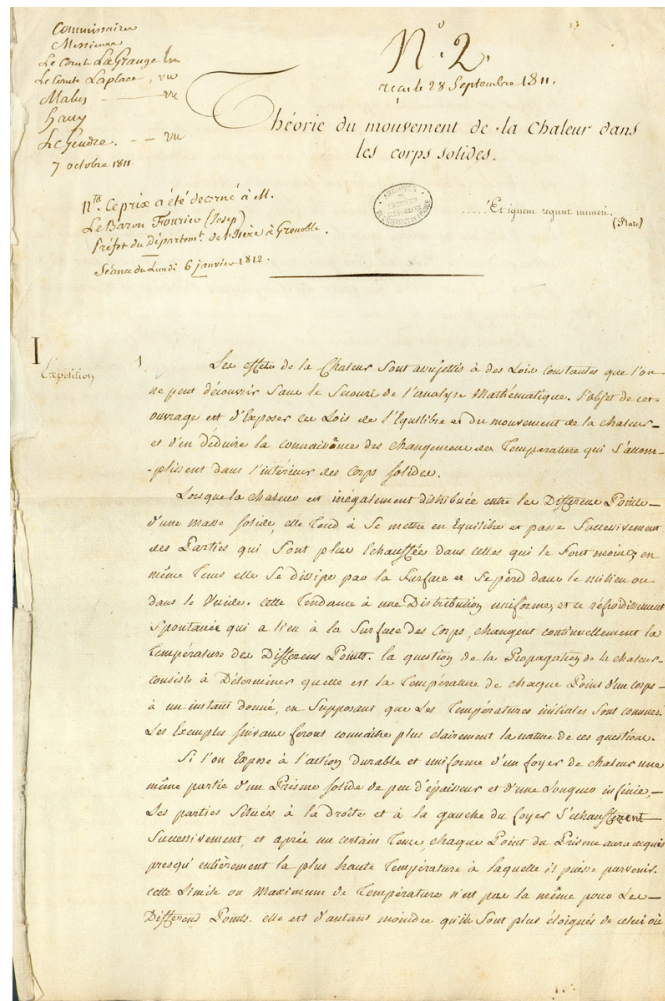 Commissaires
Messieurs
Le Comte LaGrange Lu
Le Comte Laplace, vu
Malus — vu
Hauy
Le Gendre. — vu
7 octobre 1811
N°. 2.
reçu le 28 Septembre 1811.
Théorie du mouvement de la Chaleur dans
les corps solides.
Nta. Ce prix a été décerné à M.
Le Baron Fourier (Josep)
Préfet du Départemt. de l'Isère à Grenoble.
Séance du Lundi 6 janvier 1812.
ARCHIVES
..... Et ignem regunt numeri.
(Plato)
I
Exposition
1
Les effets de la Chaleur sont assujettis à des Lois constantes que l'on
ne peut découvrir sans le Secours de l'analyse Mathématique. l'objet de cet
ouvrage est d'Exposer ces Lois de l'Equilibre et du mouvement de la chaleur
et d'en déduire la connaissance des changemens de Température qui s'accom-
-plissent dans l'intérieur des Corps solides.
Lorsque la chaleur est inégalement distribuée entre les Différens Points
d'une masse solide, elle Tend à se mettre en Equilibre et passe Successivement
des Parties qui sont plus échauffées dans celles qui le sont moins, en
même Tems elle se dissipe par la Surface et se perd dans le milieu ou
dans le Vuide. cette Tendance à une Distribution uniforme, et ce refroidissement
Spontanée qui a lieu à la Surface des Corps, changent continuellement la
Température des Différens Points. la question de la Propagation de la chaleur
consiste à Déterminer quelle est la Température de chaque Point d'un corps
à un instant donné, en Supposant que les Températures initiales sont connues.
Les Exemples suivans feront connaître plus clairement la nature de ces questions.
Si l'on Expose à l'action durable et uniforme d'un foyer de chaleur une
même partie d'un Prisme solide de peu d'épaisseur et d'une Longueur infinie,
Les parties situées à la droite et à la gauche du foyer S'échauffent
Successivement, et après un certain Tems, chaque Point du Prisme aura acquis
presqu'entièrement la plus haute Température à laquelle il puisse parvenir.
cette Limite ou Maximum de Température n'est pas la même pour les
Différens Points. elle est d'autant moindre qu'ils sont plus éloignés de celui où